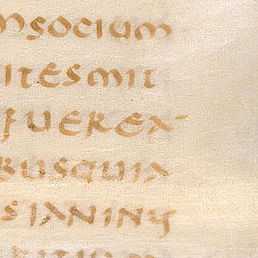 msocium
itesmit
fuerex
busquia
sianin